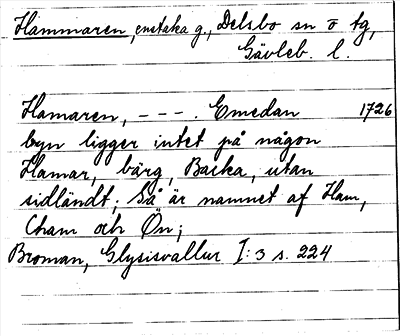 Hammaren, enstaka g., Delsbo sn o tg,
Gävleb. l.
Hamaren, - - - . Emedan 1726
byn ligger intet på någon
Hamar, bärg, Backa, utan
sidländt; Så är namnet af Ham,
Cham och Ön;
Broman, Glysisvallur I:3 s. 224